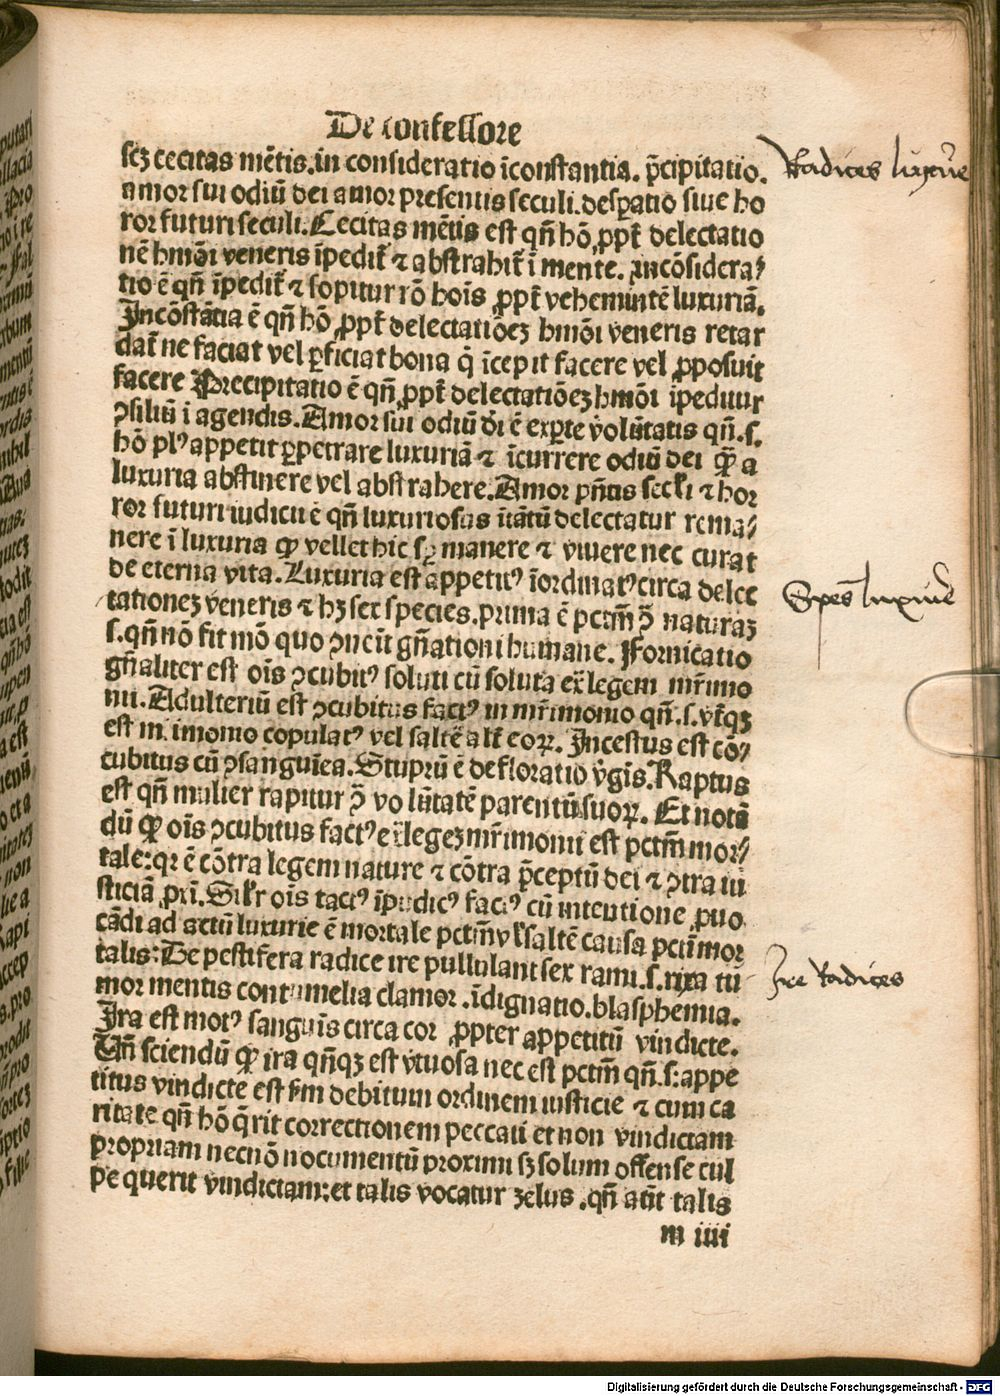 De confessore
scꝫ cecitas mētis. in consideratio īconstantia. p̄cipitatio.
amor sui odiū dei amor presentis seculi. desꝑatio siue ho
ror futuri seculi. Cecitas mētis est qn̄ hō ꝓpt̄ delectatio
nē hmōi veneris īpedit᷑ ⁊ abstrahit᷑ ī mente. incōsidera⸗
tio ē qn̄ īpedit᷑ ⁊ sopitur rō hoīs ꝓpt̄ vehemintē luxuriā.
Incōstātia ē qn̄ hō ꝓpt̄ delectatiōeꝫ hmōi veneris retar
dat᷑ ne faciat vel ꝑficiat bona q̄ īcepit facere vel ꝓposuit
facere Precipitatio ē qn̄ ꝓpt̄ delectatiōeꝫ hmōi ipeditur
ꝯsiliū ī agendis. Amor sui odiū di ē ex ꝑte volūtatis qn̄ .s.
hō plꝰ appetit ꝑpetrare luxuriā ⁊ īcurrere odiū dei ꝙ̄ a
luxuria abstinere vel abstrahere. Amor pn̄tis secĺi ⁊ hor
ror futuri iudicii ē qn̄ luxuriosus ītātū delectatur rema⸗
nere ī luxuria ꝙ vellet hic sꝑ manere ⁊ viuere nec curat
de eterna vita. Luxuria est appetitꝰ īordinatꝰ circa delec
tationeꝫ veneris ⁊ hꝫ sex species. prima ē pctm̄ ꝯ̄ naturaꝫ
.s. qn̄ nō fit mō quo ꝯuēit gn̄ationi humane. Fornicatio
gn̄aliter est oīs ꝯcubitꝰ soluti cū soluta ex̄ legem mr̄imo
nii. Adulteriū est ꝯcubitus factꝰ in mr̄imonio qn̄ .s. vt̄qꝫ
est m. imonio copulatꝰ vel saltē alt̄ eoꝝ. Incestus est cō⸗
cubitus cū ꝯsanguīea. Stuprū ē defloratio v̄gīs. Raptus
est qn̄ mulier rapitur ꝯ̄ volūtatē parentū suoꝝ. Et notā
dū ꝙ oīs ꝯcubitus factꝰ ex̄ legeꝫ mr̄imonii est pctm̄ mor⸗
tale: qr ē cōtra legem nature ⁊ cōtra p̄ceptū dei ⁊ ꝯtra iu
sticiā ꝓxī. Silr̄ oīs tactꝰ īpudicꝰ factꝰ cū intentione ꝓuo
cādi ad actū luxurie ē mortale pctm̄ vĺ saltē causa pcti mor
talis: De pestifera radice ire pullulant sex rami .s. rixa tu
mor mentis contumelia clamor. īdignatio. blasphemia.
Ira est motꝰ sanguīs circa cor ꝓpter appetitū vindicte.
Vn̄ sciendū ꝙ ira qn̄qꝫ est v̄tuosa nec est pctm̄ qn̄ .s: appe
titus vindicte est scḋm debitum ordinem iusticie ⁊ cum ca
ritate qn̄ hō q̄rit correctionem peccati et non vindictam
propriam necnō nocumentū proximi sꝫ solum offense cul
pe querit vindictam: et talis vocatur zelus. qn̄ aūt talis
m iiii
Radices luxurie
Spēs luxurie
Ire Radices
Digitalisierung gefördert durch die Deutsche Forschungsgemeinschaft - DFG